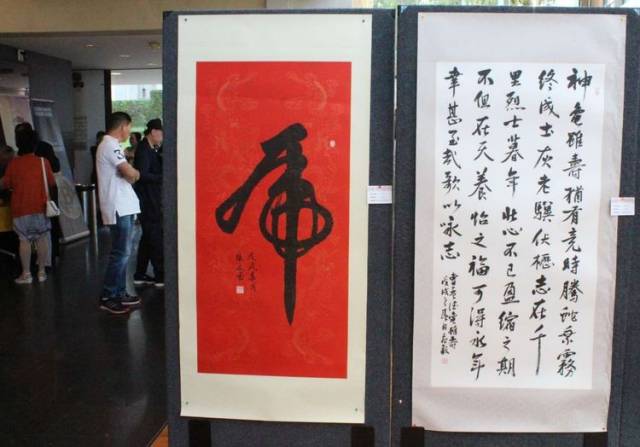 虎
神龜雖壽猶有竟時騰蛇乘霧
終成土灰老驥伏櫪志在千
里烈士暮年壯心不已盈縮之期
不但在天養怡之福可得永年
幸甚至哉歌以咏志